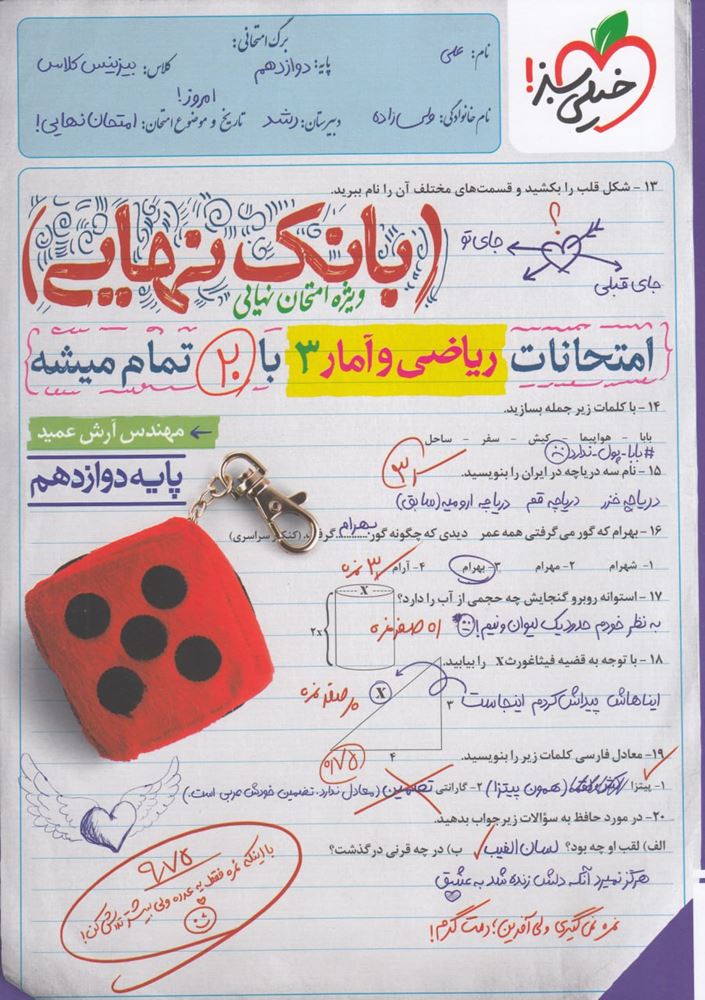 خیلی سبز!
برگ امتحانی:
نام: علی
پایه: دوازدهم
کلاس: بیزینس کلاس
نام خانوادگی: ولی زاده
دبیرستان: رشد
تاریخ و موضوع امتحان: امروز! امتحان نهایی!
۱۳ - شکل قلب را بکشید و قسمت‌های مختلف آن را نام ببرید.
؟
جای تو
جای قبلی
(بانک نهایی)
ویژه امتحان نهایی
امتحانات ریاضی و آمار ۳ با ۲۰ تمام میشه
۱۴ - با کلمات زیر جمله بسازید.
بابا - هواپیما - کیش - سفر - ساحل
#بابا-پول-ندارد
مهندس آرش عمید
پایه دوازدهم
۱۵ - نام سه دریاچه در ایران را بنویسید.
دریاچه خزر دریاچه قم دریاچه ارومیه (سابق)
۱۶ - بهرام که گور می‌گرفتی همه عمر دیدی که چگونه گور بهرام گرفت. (کنکور سراسری)
۱- شهرام ۲- مهرام ۳- بهرام ۴- آرام
۳ نمره
۱۷ - استوانه روبرو گنجایش چه حجمی از آب را دارد؟
X
2X
به نظر خودم حدود یک لیوان و نیم!
اه صفر نمره
۱۸ - با توجه به قضیه فیثاغورث X را بیابید.
X
۳
۴
ایناهاش پیداش کردم اینجاست
صفر نمره
۰/۷۵
۱۹- معادل فارسی کلمات زیر را بنویسید.
۱- پیتزا (همون پیتزا) ۲- گارانتی تضمین (معادل ندارد. تضمین خودش عربی است.)
۲۰- در مورد حافظ به سؤالات زیر جواب بدهید.
الف) لقب او چه بود؟ لسان الغیب ب) در چه قرنی درگذشت؟
هرگز نمیرد آنکه دلش زنده شد به عشق
۹/۷۵
با اینکه نمره فقط یه عدده ولی بیشتر تلاش کن!
نمره نمی‌گیری ولی آفرین؛ دمت گرم!